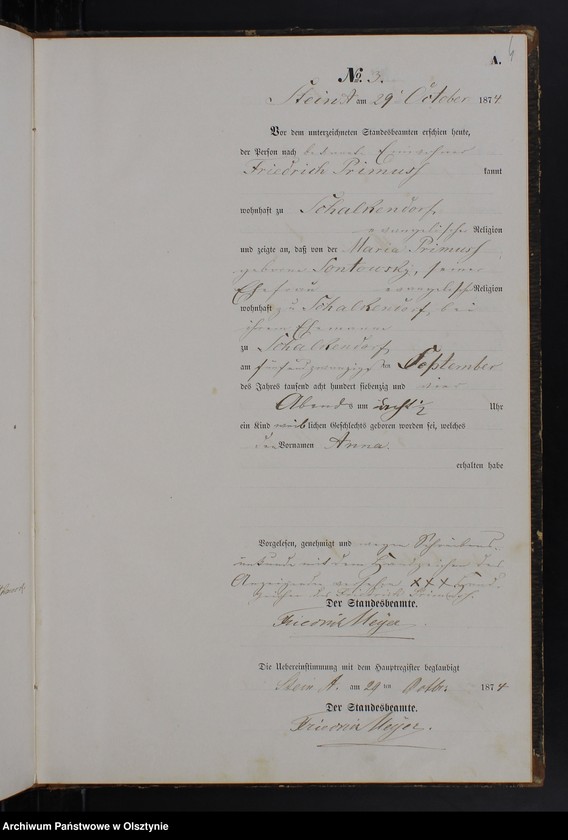 A. 4
No. 3.
Stein A am 29t October 1874
Vor dem unterzeichneten Standesbeamten erschien heute,
der Person nach bekannt Einwohner
Friedrich Primuss kannt
wohnhaft zu Schalkendorf,
evangelischer Religion
und zeigte an, daß von der Maria Primuss
geborene Sontowsky, seiner
Ehefrau evangelisch Religion
wohnhaft zu Schalkendorf bei
ihrem Ehemanne
zu Schalkendorf
am fünfundzwanzigsten September
des Jahres tausend acht hundert siebenzig und vier
Abends um Uhr
ein Kind weiblichen Geschlechts geboren worden sei, welches
den Vornamen Anna
erhalten habe
Vorgelesen, genehmigt und wegen Schreibens-
unkunde mit dem Handzeichen des
Anzeigenden versehen XXX Hand-
zeichen des Friedrich Primuss.
Der Standesbeamte.
Friedrich Meyer
Die Uebereinstimmung mit dem Hauptregister beglaubigt
Stein A. am 29ten Octbr. 1874
Der Standesbeamte.
Friedrich Meyer.
Archiwum Państwowe w Olsztynie